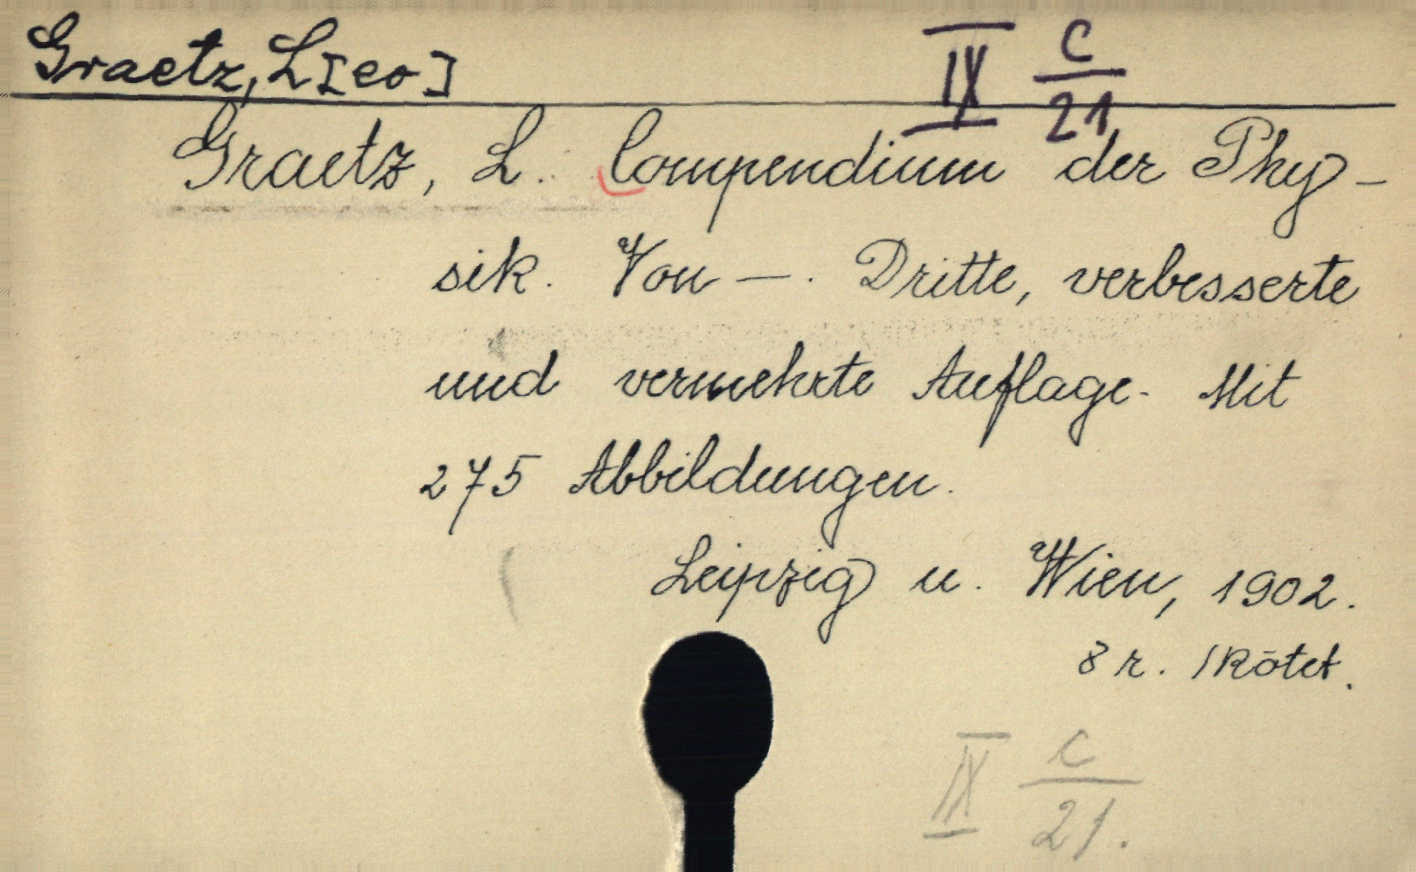 Graetz, L[eo]
IX C/21
Graetz, L. Compendium der Phy-
sik. Von —. Dritte, verbesserte
und vermehrte Auflage. Mit
275 Abbildungen.
Leipzig u. Wien, 1902.
8 r. 1 kötet.
IX C/21.